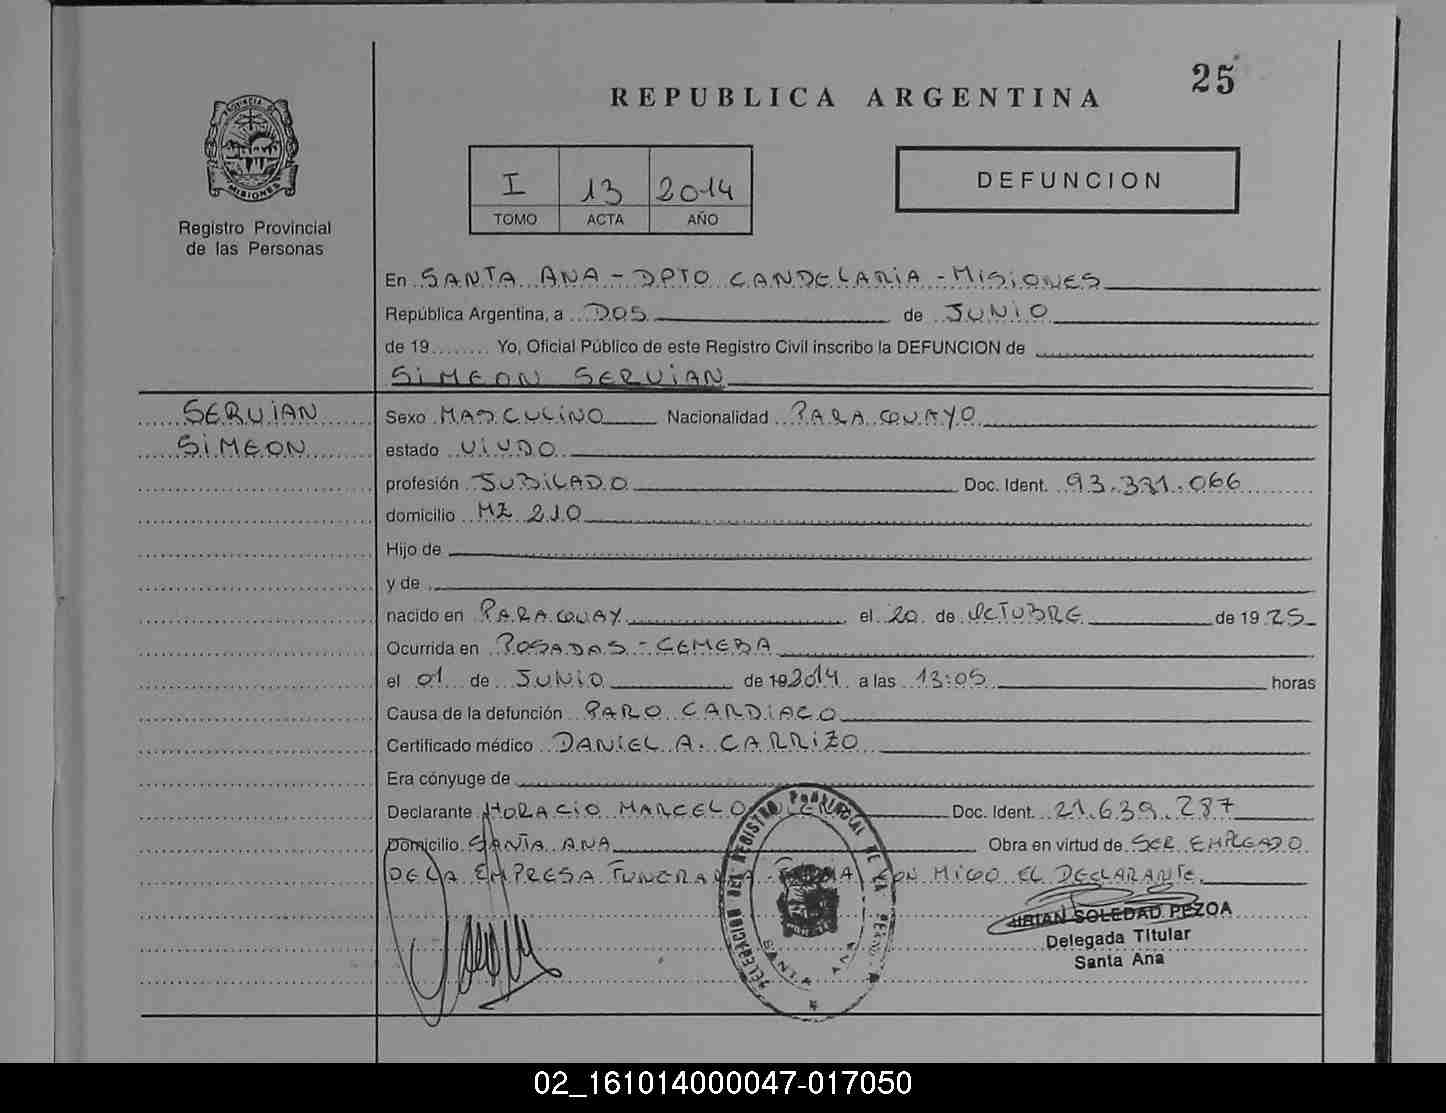 25
REPUBLICA ARGENTINA
PROVINCIA DE
MISIONES
Registro Provincial
de las Personas
I 13 2014
TOMO ACTA AÑO
DEFUNCION
En SANTA ANA - DPTO CANDELARIA - MISIONES
República Argentina, a DOS de JUNIO
de 19........ Yo, Oficial Público de este Registro Civil inscribo la DEFUNCION de
SIMEON SERVIAN
SERVIAN
SIMEON
Sexo MASCULINO Nacionalidad PARAGUAYO
estado VIUDO
profesión JUBILADO Doc. Ident. 93.331.066
domicilio MZ 210
Hijo de
y de
nacido en PARAGUAY el 20 de OCTUBRE de 1925
Ocurrida en POSADAS - CEMEBA
el 01 de JUNIO de 2014 a las 13:05 horas
Causa de la defunción PARO CARDIACO
Certificado médico DANIEL A. CARRIZO
Era cónyuge de
Declarante HORACIO MARCELO Doc. Ident. 21.639.287
Domicilio SANTA ANA Obra en virtud de SER EMPLEADO
DE LA EMPRESA FUNERARIA - FIRMA CON MIGO EL DECLARANTE.
DELEGACION DEL REGISTRO PROVINCIAL DE LA
SANTA ANA
MIRIAN SOLEDAD PEZOA
Delegada Titular
Santa Ana
02_161014000047-017050